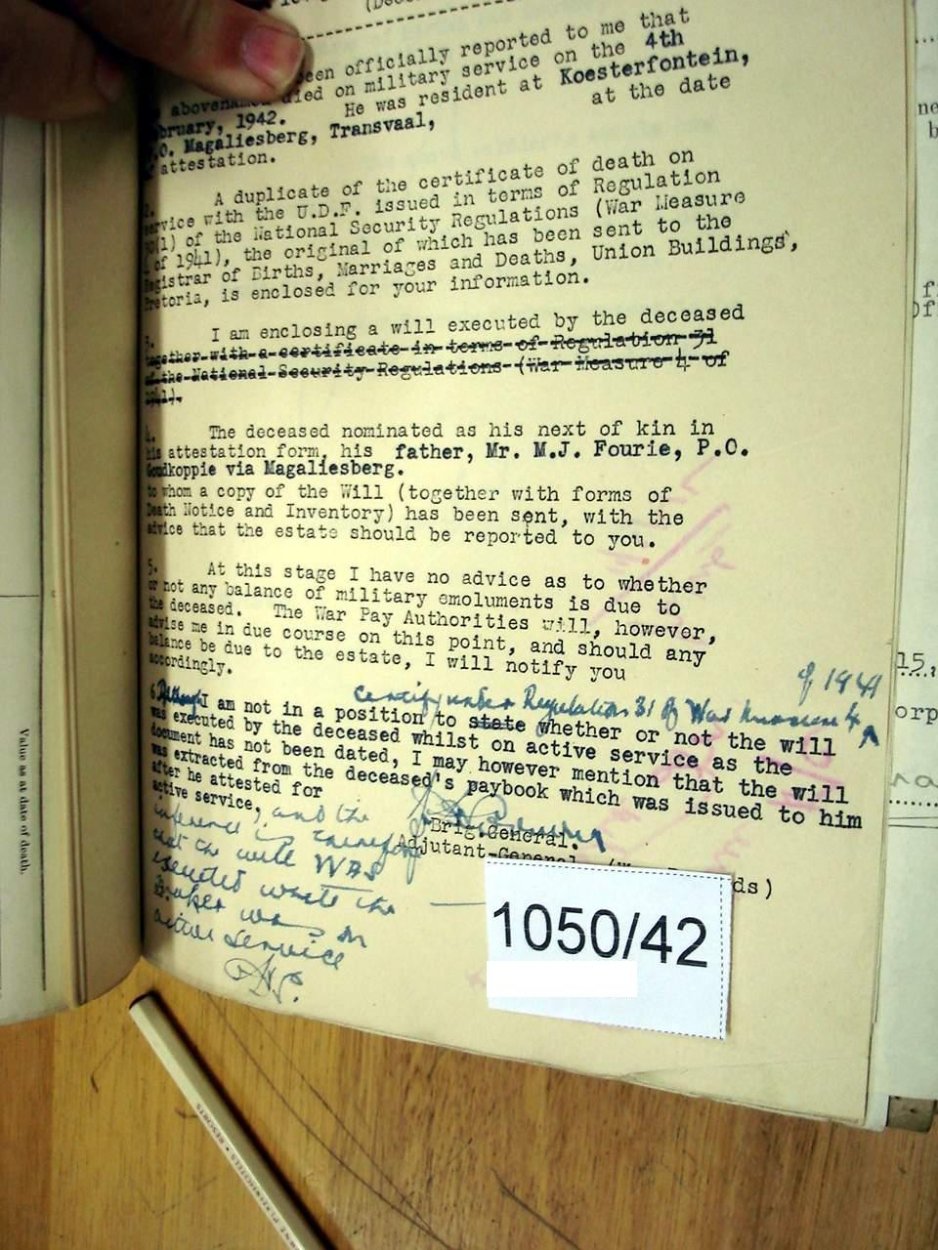 (Dec
been officially reported to me that
abovenamed died on military service on the 4th
bruary, 1942. He was resident at Koesterfontein,
.O. Magaliesberg, Transvaal, at the date
attestation.
2. A duplicate of the certificate of death on
ervice with the U.D.F. issued in terms of Regulation
(1) of the National Security Regulations (War Measure
of 1941), the original of which has been sent to the
egistrar of Births, Marriages and Deaths, Union Buildings,
retoria, is enclosed for your information.
3. I am enclosing a will executed by the deceased
together with a certificate in terms of Regulation 31
of the National Security Regulations (War Measure 4 of
1941).
4. The deceased nominated as his next of kin in
his attestation form, his father, Mr. M.J. Fourie, P.O.
Goudkoppie via Magaliesberg.
to whom a copy of the Will (together with forms of
Death Notice and Inventory) has been sent, with the
advice that the estate should be reported to you.
5. At this stage I have no advice as to whether
or not any balance of military emoluments is due to
the deceased. The War Pay Authorities will, however,
advise me in due course on this point, and should any
balance be due to the estate, I will notify you
accordingly.
of 1941
certify under Regulation 31 of War Measure 4
6. Although I am not in a position to state whether or not the will
was executed by the deceased whilst on active service as the
document has not been dated, I may however mention that the will
was extracted from the deceased's paybook which was issued to him
after he attested for
active service, and the
inference is therefore
that the will WAS
executed whilst the
maker was on
active service
Brig.General.
Adjutant-General
ds)
1050/42
Value as at date of death.
15,
orp